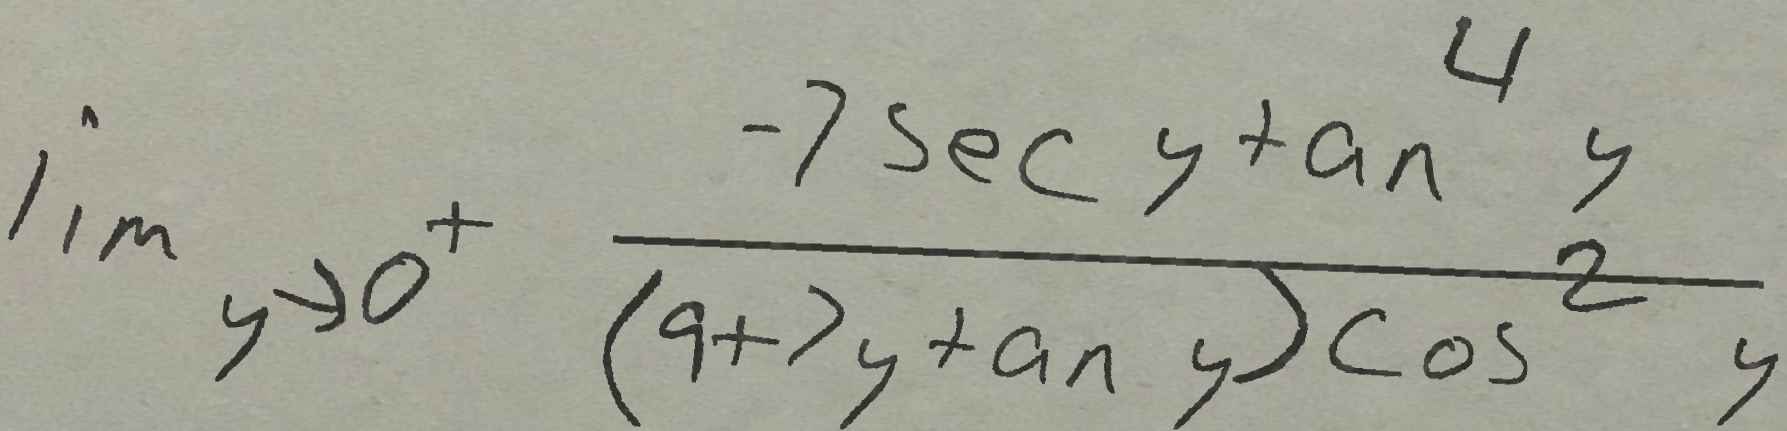 \lim_{y \to 0^+} \frac{-7 \sec y \tan^4 y}{(9+7y \tan y) \cos^2 y}